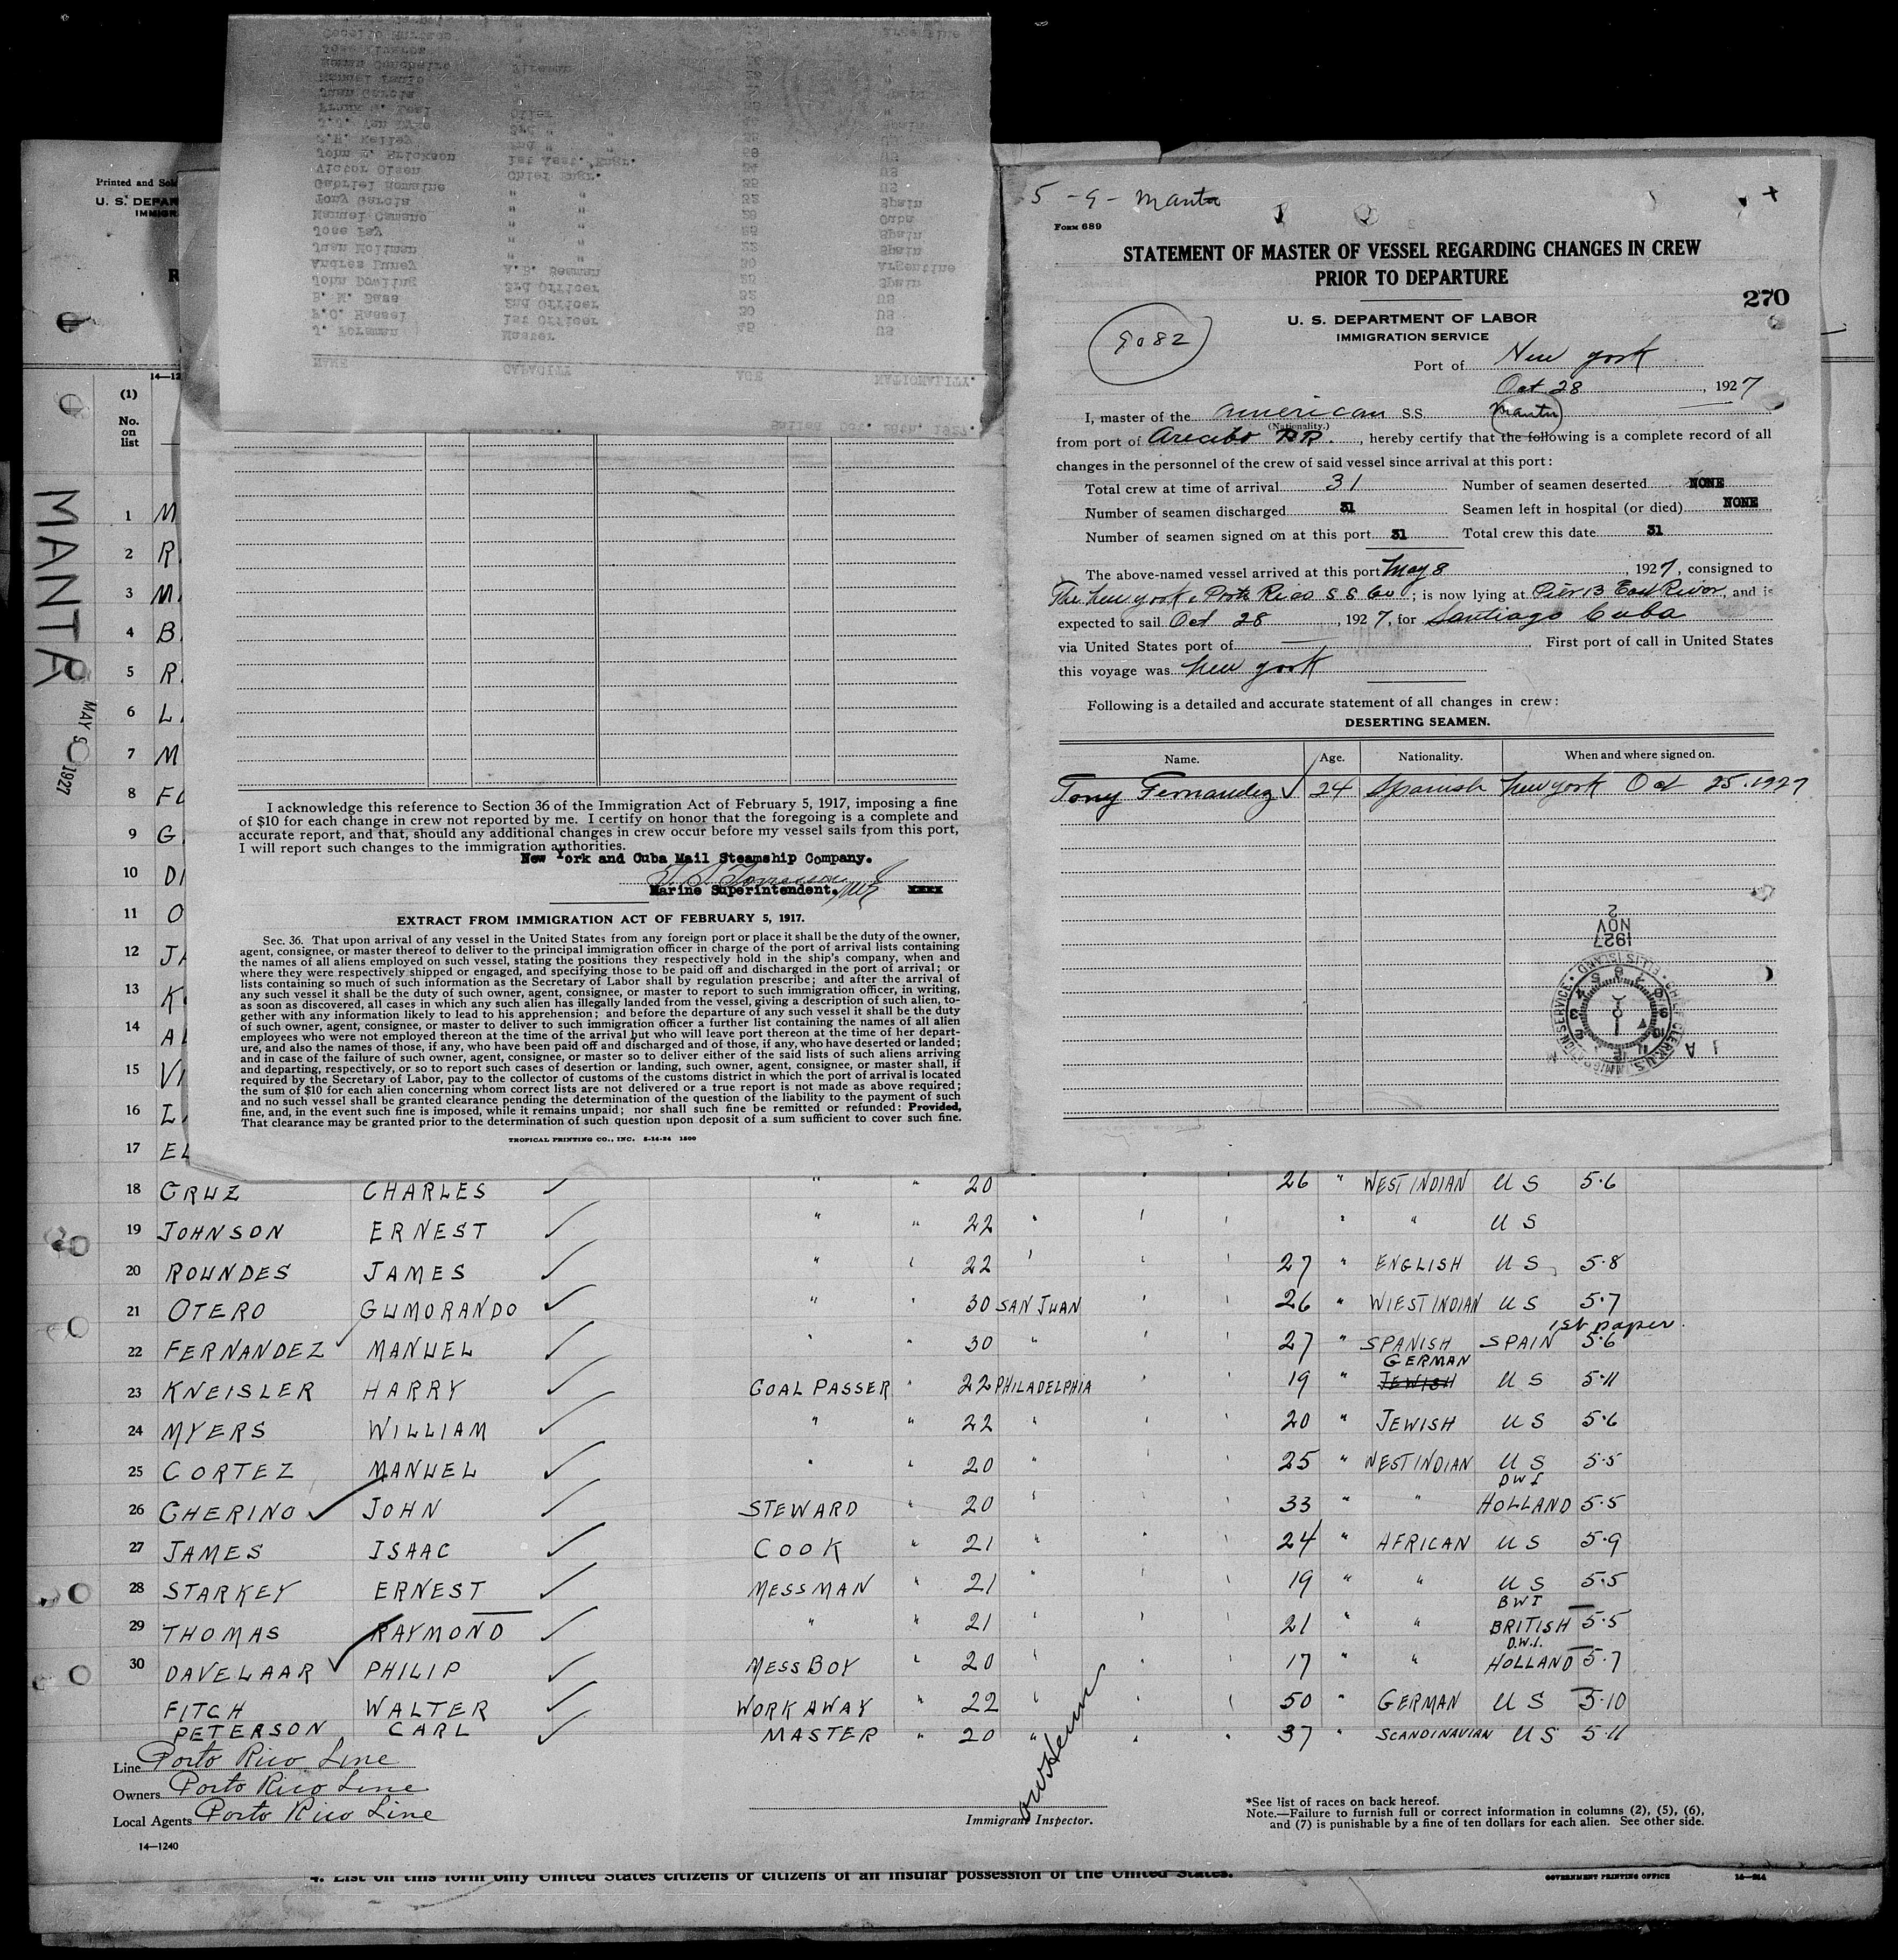 Cecilio Hurtado Argentine
Jose Alvarez "
Roman Concheiro Fireman
Manuel Tanio
Juan Garcia Spain
Frank R. Leal Oiler
J.J. Van Dyke 3rd " "
F.H. Kelley 2nd " "
John E. Erickson 1st Asst. Engr. US
Victor Olsen Chief Engr. US
Gabriel Romaine " " 35 US
Tony Garcia " " 32 Spain
Manuel Camano " " 28 Cuba
Jose Rey " " Spain
Juan Moltman " " 22 Spain
Andres Luney A.B. Seaman 30 Argentine
John Dowling 3rd Officer Spain
B. M. Bass 2nd Officer 32 US
F.O. Hassel 1st Officer 30 US
J. Forsman Master 45 US
NAME CAPACITY AGE NATIONALITY.
Sailed Oct. 28th, 1927.
Printed and Sold
U. S. DEPAR
IMMIGR
R
14—12
(1)
No.
on
list
MANTA
MAY 9 1927
1 M
2 R
3 M
4 B
5 R
6 L
7 M
8 FL
9 G
10 DI
11 O
12 JA
13 K
14 AL
15 VI
16 L
17 EL
I acknowledge this reference to Section 36 of the Immigration Act of February 5, 1917, imposing a fine
of $10 for each change in crew not reported by me. I certify on honor that the foregoing is a complete and
accurate report, and that, should any additional changes in crew occur before my vessel sails from this port,
I will report such changes to the immigration authorities.
New York and Cuba Mail Steamship Company.
Marine Superintendent. xxxx
EXTRACT FROM IMMIGRATION ACT OF FEBRUARY 5, 1917.
Sec. 36. That upon arrival of any vessel in the United States from any foreign port or place it shall be the duty of the owner,
agent, consignee, or master thereof to deliver to the principal immigration officer in charge of the port of arrival lists containing
the names of all aliens employed on such vessel, stating the positions they respectively hold in the ship's company, when and
where they were respectively shipped or engaged, and specifying those to be paid off and discharged in the port of arrival; or
lists containing so much of such information as the Secretary of Labor shall by regulation prescribe; and after the arrival of
any such vessel it shall be the duty of such owner, agent, consignee, or master to report to such immigration officer, in writing,
as soon as discovered, all cases in which any such alien has illegally landed from the vessel, giving a description of such alien, to-
gether with any information likely to lead to his apprehension; and before the departure of any such vessel it shall be the duty
of such owner, agent, consignee, or master to deliver to such immigration officer a further list containing the names of all alien
employees who were not employed thereon at the time of the arrival but who will leave port thereon at the time of her depart-
ure, and also the names of those, if any, who have been paid off and discharged and of those, if any, who have deserted or landed;
and in case of the failure of such owner, agent, consignee, or master so to deliver either of the said lists of such aliens arriving
and departing, respectively, or so to report such cases of desertion or landing, such owner, agent, consignee, or master shall, if
required by the Secretary of Labor, pay to the collector of customs of the customs district in which the port of arrival is located
the sum of $10 for each alien concerning whom correct lists are not delivered or a true report is not made as above required;
and no such vessel shall be granted clearance pending the determination of the question of the liability to the payment of such
fine, and, in the event such fine is imposed, while it remains unpaid; nor shall such fine be remitted or refunded: Provided,
That clearance may be granted prior to the determination of such question upon deposit of a sum sufficient to cover such fine.
TROPICAL PRINTING CO., INC. 5-14-24 1500
5 - 9 - Manta
FORM 689
STATEMENT OF MASTER OF VESSEL REGARDING CHANGES IN CREW
PRIOR TO DEPARTURE
270
U. S. DEPARTMENT OF LABOR
IMMIGRATION SERVICE
9082
Port of New York
Oct 28, 1927
I, master of the American S.S. Manta
(Nationality.)
from port of Arecibo P.R., hereby certify that the following is a complete record of all
changes in the personnel of the crew of said vessel since arrival at this port:
Total crew at time of arrival 31 Number of seamen deserted NONE
Number of seamen discharged 31 Seamen left in hospital (or died) NONE
Number of seamen signed on at this port 31 Total crew this date 31
The above-named vessel arrived at this port May 8, 1927, consigned to
The New York & Porto Rico S S Co; is now lying at Pier 13 East River, and is
expected to sail Oct 28, 1927, for Santiago Cuba
via United States port of First port of call in United States
this voyage was New York
Following is a detailed and accurate statement of all changes in crew:
DESERTING SEAMEN.
Name. Age. Nationality. When and where signed on.
Tony Fernandez ✓ 24 Spanish New York Oct 25. 1927
1927
NOV
2
CHIEF CLERK U.S. IMMIGRATION SERVICE · ELLIS ISLAND ·
18 CRUZ CHARLES ✓ " " 20 26 " WEST INDIAN U S 5·6
19 JOHNSON ERNEST ✓ " " 22 " " " " " U S
20 ROUNDES JAMES ✓ " " 22 " " " 27 " ENGLISH U S 5·8
21 OTERO GUMORANDO ✓ " " 30 SAN JUAN " " 26 " WIEST INDIAN U S 5·7
1st paper.
22 FERNANDEZ ✓ MANUEL ✓ " " 30 " " " 27 " SPANISH SPAIN 5·6
GERMAN
23 KNEISLER HARRY ✓ COAL PASSER " 22 PHILADELPHIA " " 19 " JEWISH U S 5·11
24 MYERS WILLIAM ✓ " " 22 " " " 20 " JEWISH U S 5·6
25 CORTEZ MANUEL ✓ " " 20 " " " 25 " WEST INDIAN U S 5·5
DWI
26 CHERINO ✓ JOHN ✓ STEWARD " 20 " " " 33 " " HOLLAND 5·5
27 JAMES ISAAC ✓ COOK " 21 " " " 24 " AFRICAN U S 5·9
28 STARKEY ERNEST ✓ MESSMAN " 21 " " " 19 " " U S 5·5
BWI
29 THOMAS RAYMOND ✓ " " 21 " " " 21 " " BRITISH 5·5
D.W.I.
30 DAVELAAR ✓ PHILIP ✓ MESS BOY " 20 " " " 17 " " HOLLAND 5·7
FITCH WALTER ✓ WORKAWAY " 22 " " " 50 " GERMAN U S 5·10
PETERSON CARL ✓ MASTER " 20 " " " 37 " SCANDINAVIAN U S 5·11
Line Porto Rico Line
Owners Porto Rico Line
Local Agents Porto Rico Line
14—1240
Immigrant Inspector.
*See list of races on back hereof.
Note.—Failure to furnish full or correct information in columns (2), (5), (6),
and (7) is punishable by a fine of ten dollars for each alien. See other side.
4. List on this form only United States citizens or citizens of an insular possession of the United States.
GOVERNMENT PRINTING OFFICE 14—244